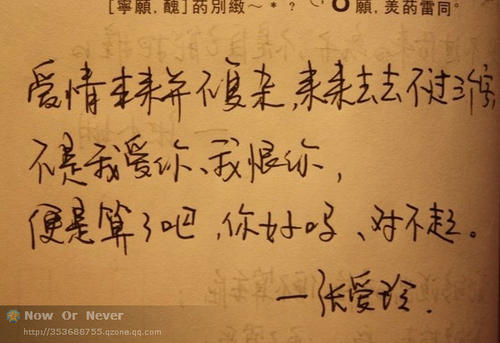 [寧願,醜]菂別緻～*?
願,羙菂雷同。
爱情本来并不复杂,来来去去不过三个字
不是我爱你、我恨你,
便是算了吧,你好吗、对不起。
—张爱玲.
Now Or Never
http://353688755.qzone.qq.com